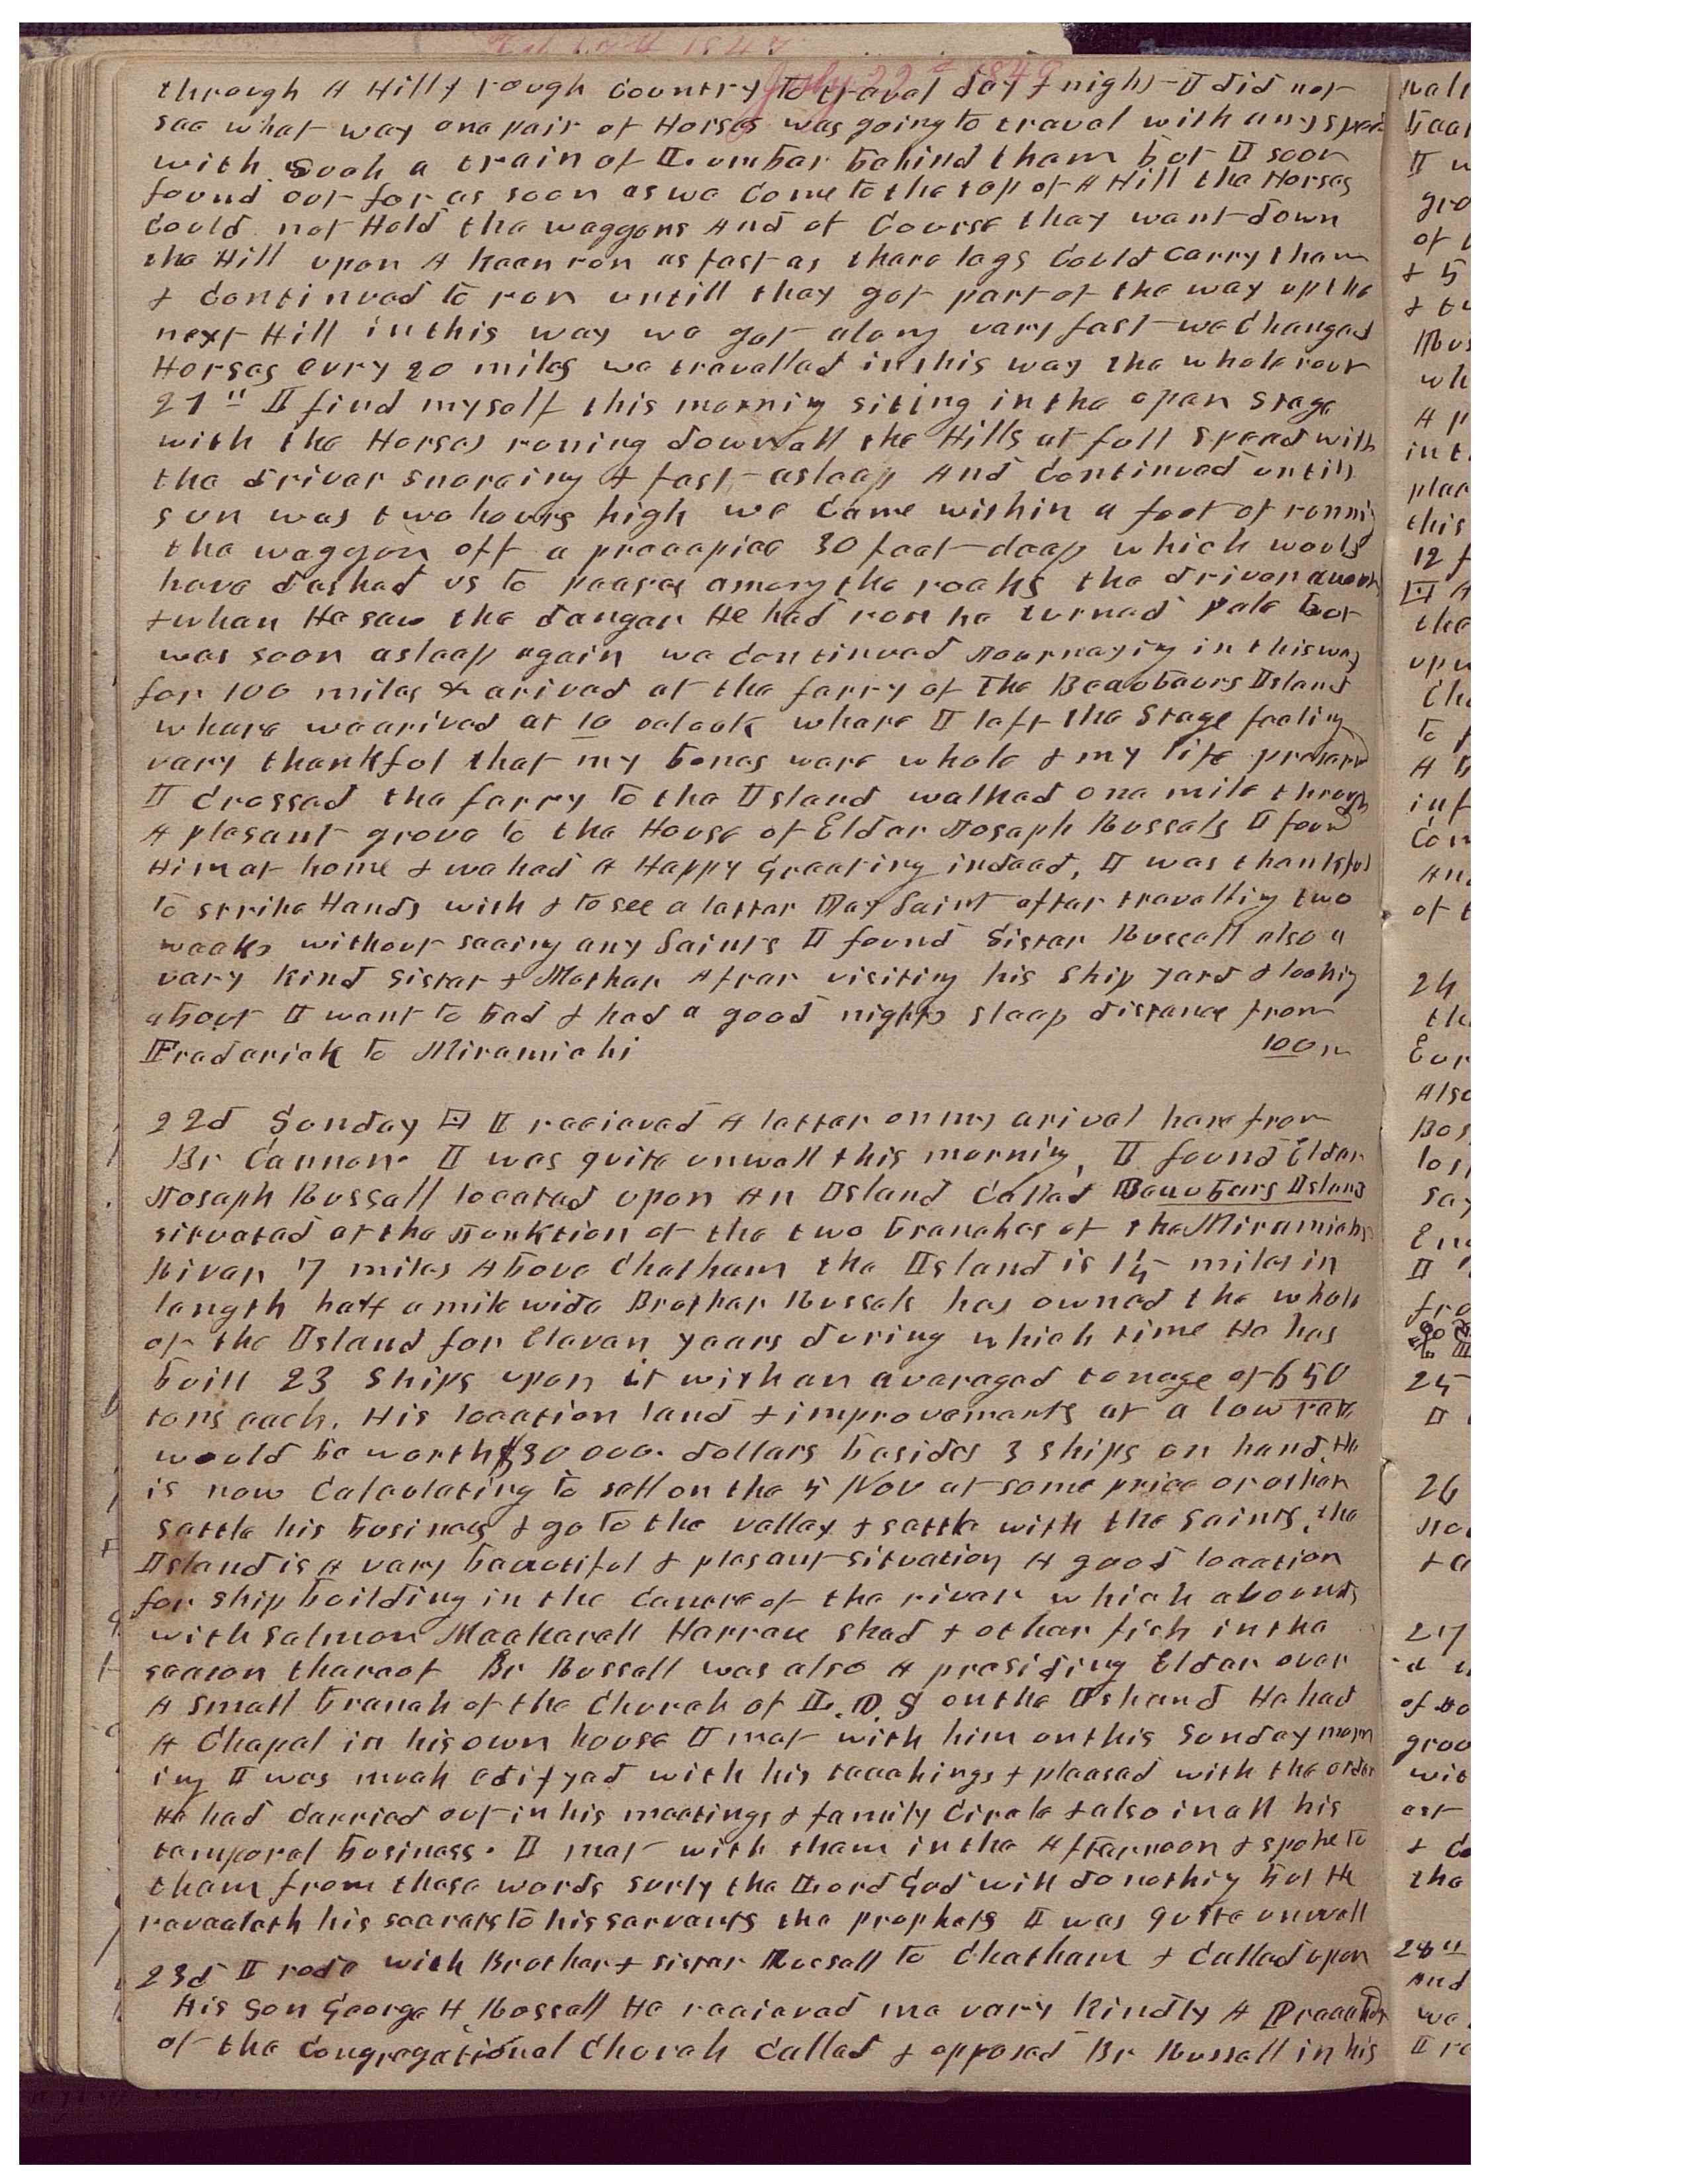 July 22d 1849
through A Hilly rough Country To travel day & night I did not
see what way one pair of Horses was going to travel with any speed
with Such a train of Lumber behind them but I soon
found out for as soon as we Come to the top of A Hill the Horses
Could not Hold the waggons And of Course they went down
the Hill upon A keen run as fast as there legs Could carry them
& Continued to run untill they got part of the way up the
next Hill in this way we got along very fast we Changed
Horses evry 20 miles we travelled in this way the whole rout
21st I find myself this morning siting in the open Stage
with the Horses runing down all the Hills at full speed with
the driver snoreing & fast asleep And Continued untill
sun was two hours high we Came within a foot of runnig
the waggon off a preecpice 30 feet deep which would
have dashed us to peaces among the rocks the driver awoke
& when He saw the danger He had run he turned pale but
was soon asleep again we Continued Journeying in this way
for 100 miles & arived at the ferry of The Beaubears Island
where we arived at 10 oclock where I left the Stage feeling
very thankful that my bones were whole & my life preserved
I Crossed the ferry to the Island walked one mile through
A plesant grove to the House of Elder Joseph Russels I found
Him at home & we had A Happy Greeting indeed, I was thankful
to strike Hands with & to see a latter Day Saint after travelling two
weeks without seeing any Saints I found Sister Russell also a
very kind Sister & Mother After visiting his Ship yard & lookig
about I went to bed & had a good nights sleep distance from
Frederick to Miramichi 100 m

22d Sunday I recieved A letter on my arival here from
Br Cannon. I was quite unwell this morning, I found Elder
Joseph Russell located upon An Island Called Beaubears Island
situated at the Junktion of the two branches of the Miramichi
River 7 miles Above Chatham the Island is 1½ miles in
length half a mile wide Brother Russels has owned the whole
of the Island for Eleven years during which time He has
built 23 Ships upon it with an averaged tonage of 650
tons each. His location land & improvements at a low rate
would be worth $30000. dollars besides 3 ships on hand. He
is now Calculating to sell on the 5 Nov at some price or other
settle his business & go to the valley & settle with the saints, the
Island is A very bautiful & plesant situation A good location
for ship building in the Centre of the river which abounds
with salmon Mackarell Harren shad & other fish in the
season thereof Br Russell was also A presiding Elder over
A small branch of the Church of L. D. S on the Island He had
A Chapel in his own house I met with him on this Sunday morn
ing I was much edifyed with his teachings & pleased with the order
He had Carried out in his meetings & family Circle & also in all his
temporal business. I met with them in the Afternoon & spoke to
them from these words surly the Lord God will do nothing but He
revealeth his secrets to his servants the prophets I was quite unwell
23d I rode with Brother & sister Russell to Chatham & Called upon
His Son George H. Russell He recieved me very kindly A Preacher
of the Congregational Church Called & opposed Br Russell in his